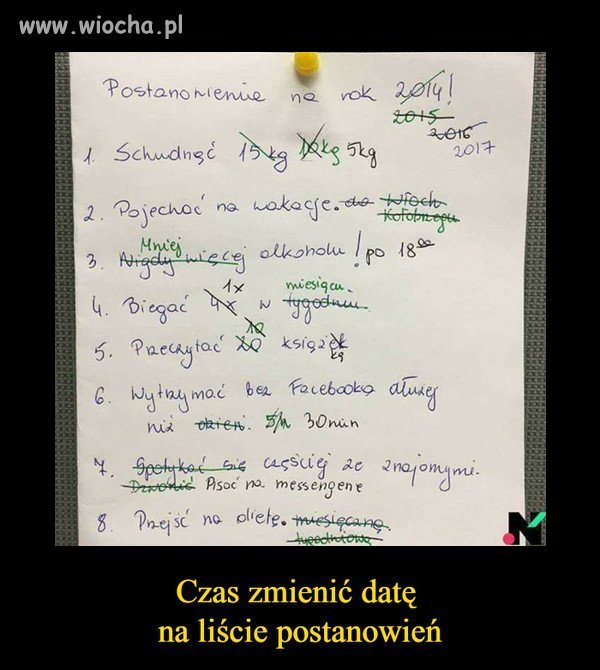 www.wiocha.pl
Postanowienie na rok 2014!
2015
2016
2017
1. Schudnąć 15kg 10kg 5kg
2. Pojechać na wakacje. do Włoch
Kołobrzegu
Mniej
3. Nigdy więcej alkoholu! po 18⁰⁰
1x miesiącu.
4. Biegać 4x w tygodniu.
10
5. Przeczytać 20 książek
kę
6. Wytrzymać bez Facebooka dłużej
niż dzień. 5h 30min
7. Spotykać się częściej ze znajomymi.
Dzwonić Pisać na messengerze
8. Przejść na dietę. miesięczną.
tygodniową
N
Czas zmienić datę
na liście postanowień